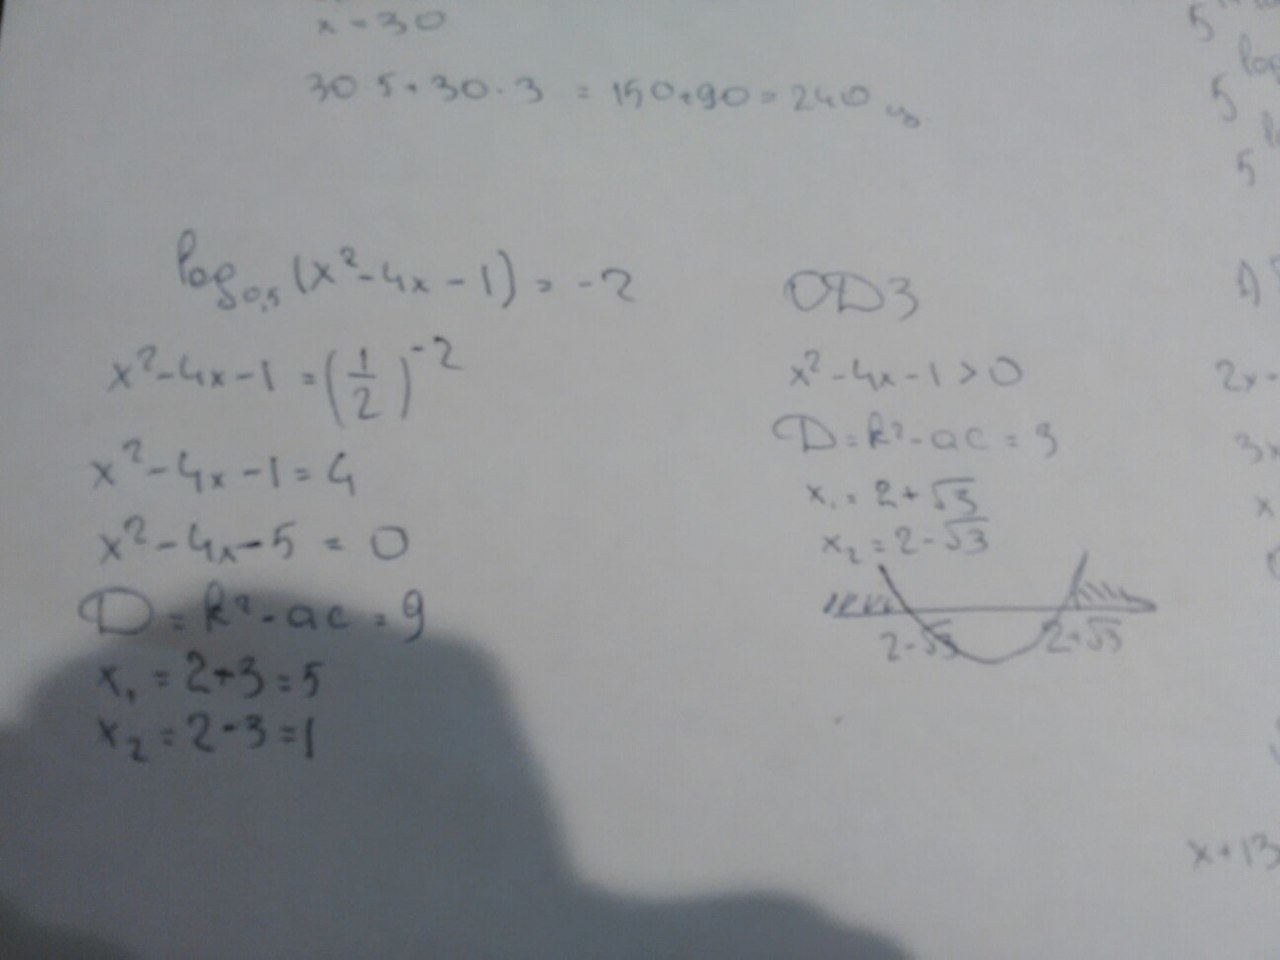 x = 30
30·5+30·3 = 150+90 = 240 ц
log₀,₅(x²-4x-1) = -2
x²-4x-1 = (1/2)⁻²
x²-4x-1 = 4
x²-4x-5 = 0
D = k²-ac = 9
x₁ = 2+3 = 5
x₂ = 2-3 = 1
ОДЗ
x²-4x-1 > 0
D = k²-ac = 3
x₁ = 2+√3
x₂ = 2-√3
2-√3 2+√3
5
5 log
5
1)
2x-
3x
x
x+13